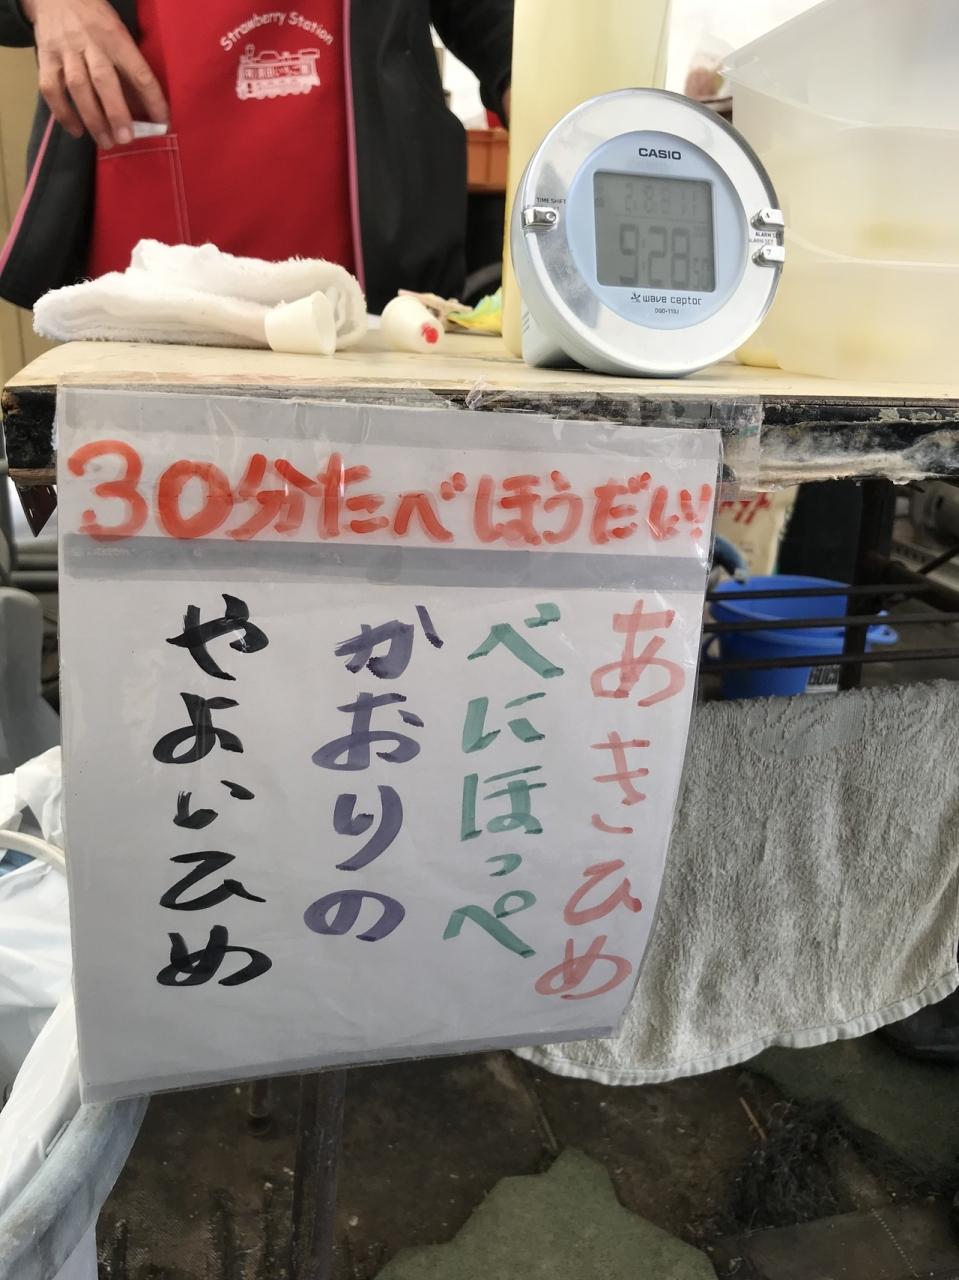 Strawberry Station
CASIO
TIME SHIFT
9:20
wave ceptor
DQD-110J
30分たべほうだい!
あきひめ
べにほっぺ
かおりの
やよいひめ